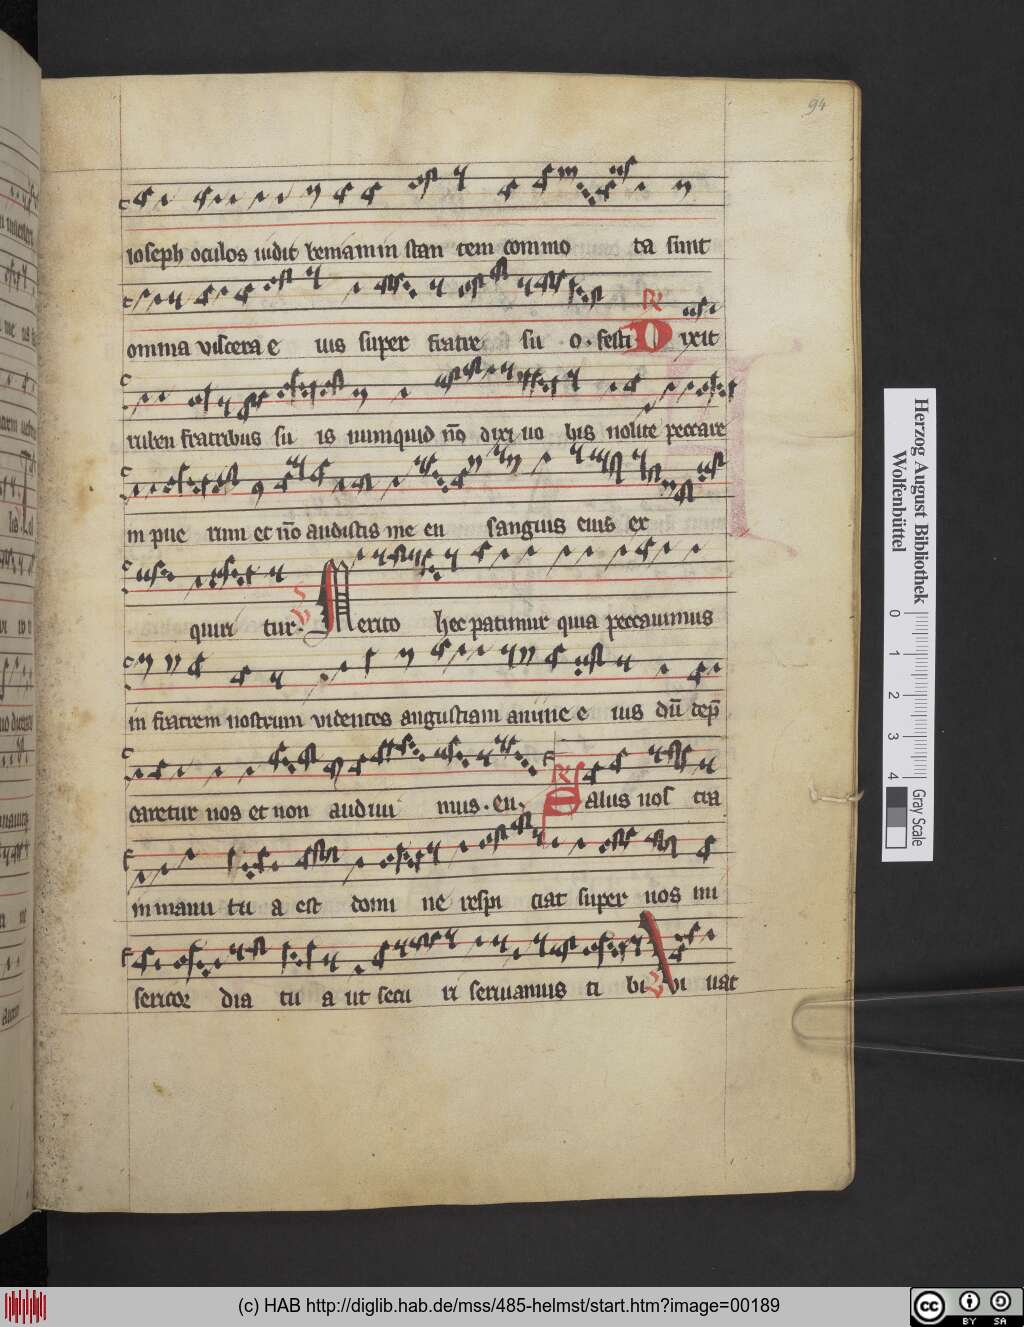 94
ioseph oculos uidit beniamin stan tem commo ta sunt
omnia viscera e ius super fratre su o. festi ℟ Dixit
ruben fratribus su is numquid nō dixi uo bis nolite peccare
in pue rum et nō audistis me en sanguis eius ex
quiri tur. ℣ Merito hec patimur quia peccauimus
in fratrem nostrum videntes angustiam anime e ius dū dep̄
caretur nos et non audiui mus. en. ℟ Salus nos tra
in manu tu a est domi ne respi ciat super nos mi
sericor dia tu a ut secu ri seruiamus ti bi ℣ Vi uat
Herzog August Bibliothek
Wolfenbüttel
0 1 2 3 4
Gray Scale
(c) HAB http://diglib.hab.de/mss/485-helmst/start.htm?image=00189
cc BY SA